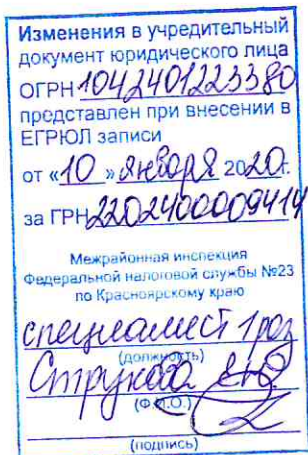 Изменения в учредительный
документ юридического лица
ОГРН 1042401223380
представлен при внесении в
ЕГРЮЛ записи
от «10» января 2020г.
за ГРН 2202400009414
Межрайонная инспекция
Федеральной налоговой службы №23
по Красноярскому краю
специалист 1 раз
(должность)
Струкова
(Ф.И.О.)
(подпись)